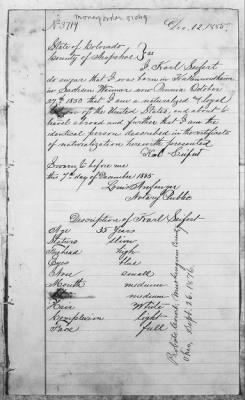 Money order wrong
No. 3719
Dec. 12. 1885
State of Colorado
County of Arapahoe } ss
I Karl Seifert
do swear that I was born in Kaltennordheim
in Sachsen Weimar
27th 1850 that I am a naturalized & loyal
of the United States, and about to
travel abroad and further that I am the
identical person described in the certificate
of naturalization herewith presented
Karl Seifert
Sworn to before me
this 7th day of December 1885
Louis Anfenger
Notary Public
Description of Karl Seifert
Age 35 Years
Stature slim
Forehead high
Eyes blue
Nose small
Mouth medium
medium
Hair White
Complexion light
Face full
Probate Court, Muskingum County
Ohio, Sept. 26. 1876.